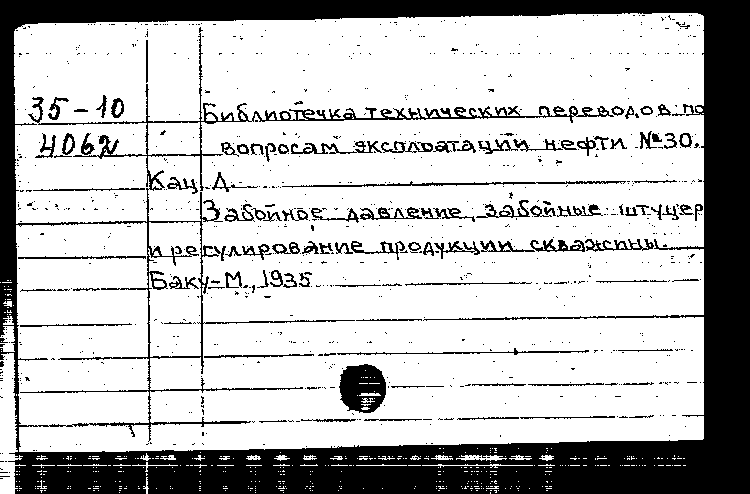 35-10 Библиотечка технических переводов по
4062 вопросам эксплоатации нефти №30.
Кац, Д.
Забойное давление, забойные штуцер
и регулирование продукции скважины.
Баку-М., 1935